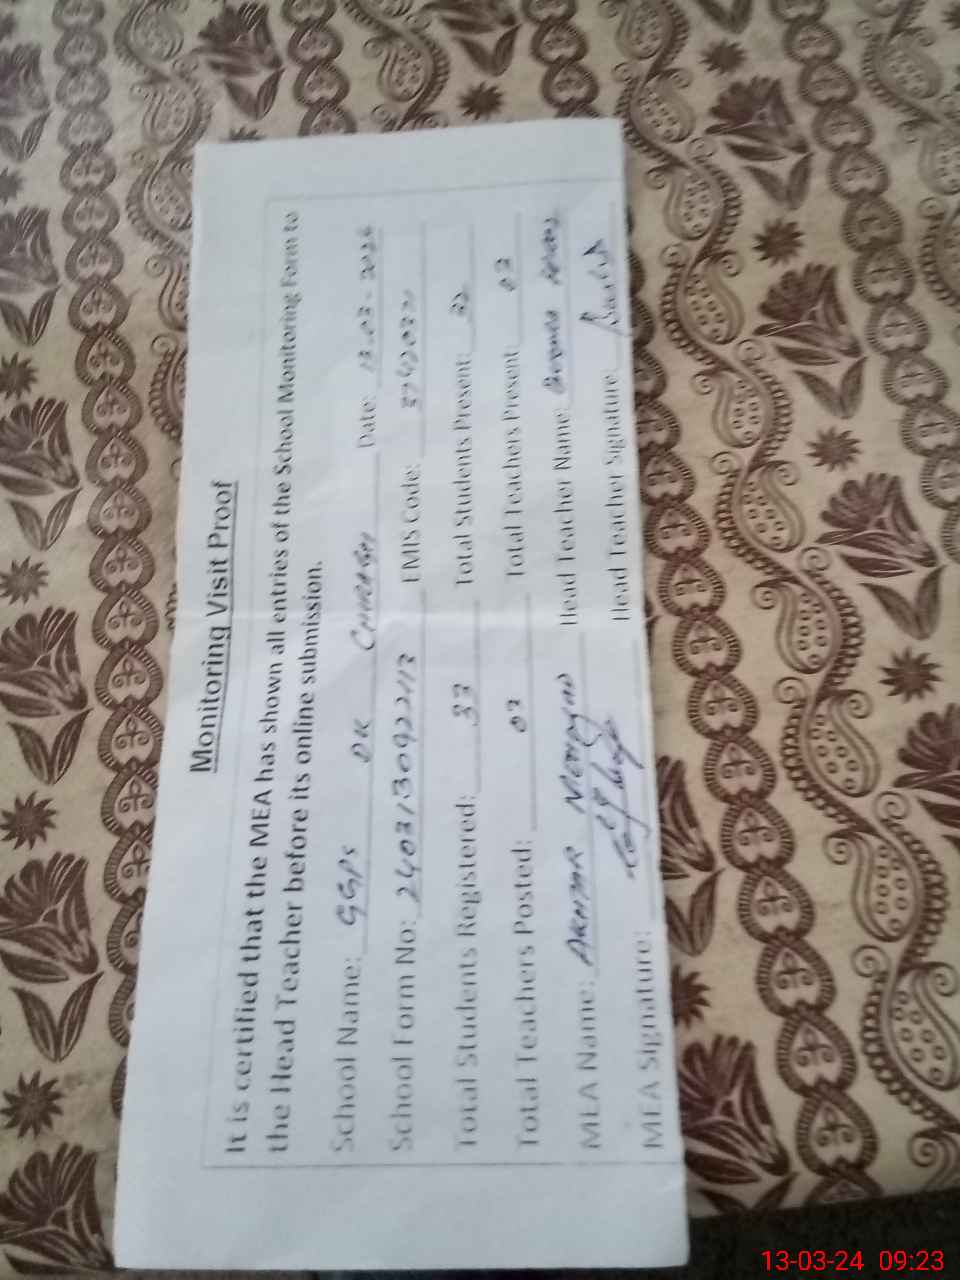 Monitoring Visit Proof
It is certified that the MEA has shown all entries of the School Monitoring Form to
the Head Teacher before its online submission.
School Name: GGPS DK Date: 13.03.2024
School Form No: EMIS Code:
Total Students Registered: 33 Total Students Present:
Total Teachers Posted: 02 Total Teachers Present: 02
MEA Name: AKHTAR Head Teacher Name:
MEA Signature: Head Teacher Signature:
13-03-24 09:23